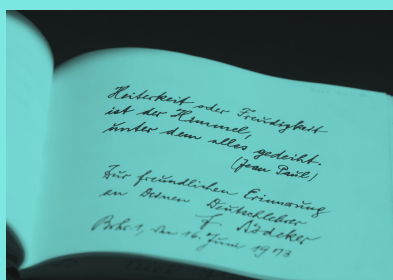 Heiterkeit oder Freudigkeit
ist der Himmel,
unter dem alles gedeiht.
(Jean Paul)
Zur freundlichen Erinnerung
an Deinen Deutschlehrer
Rödeker
den 16. Juni 1973